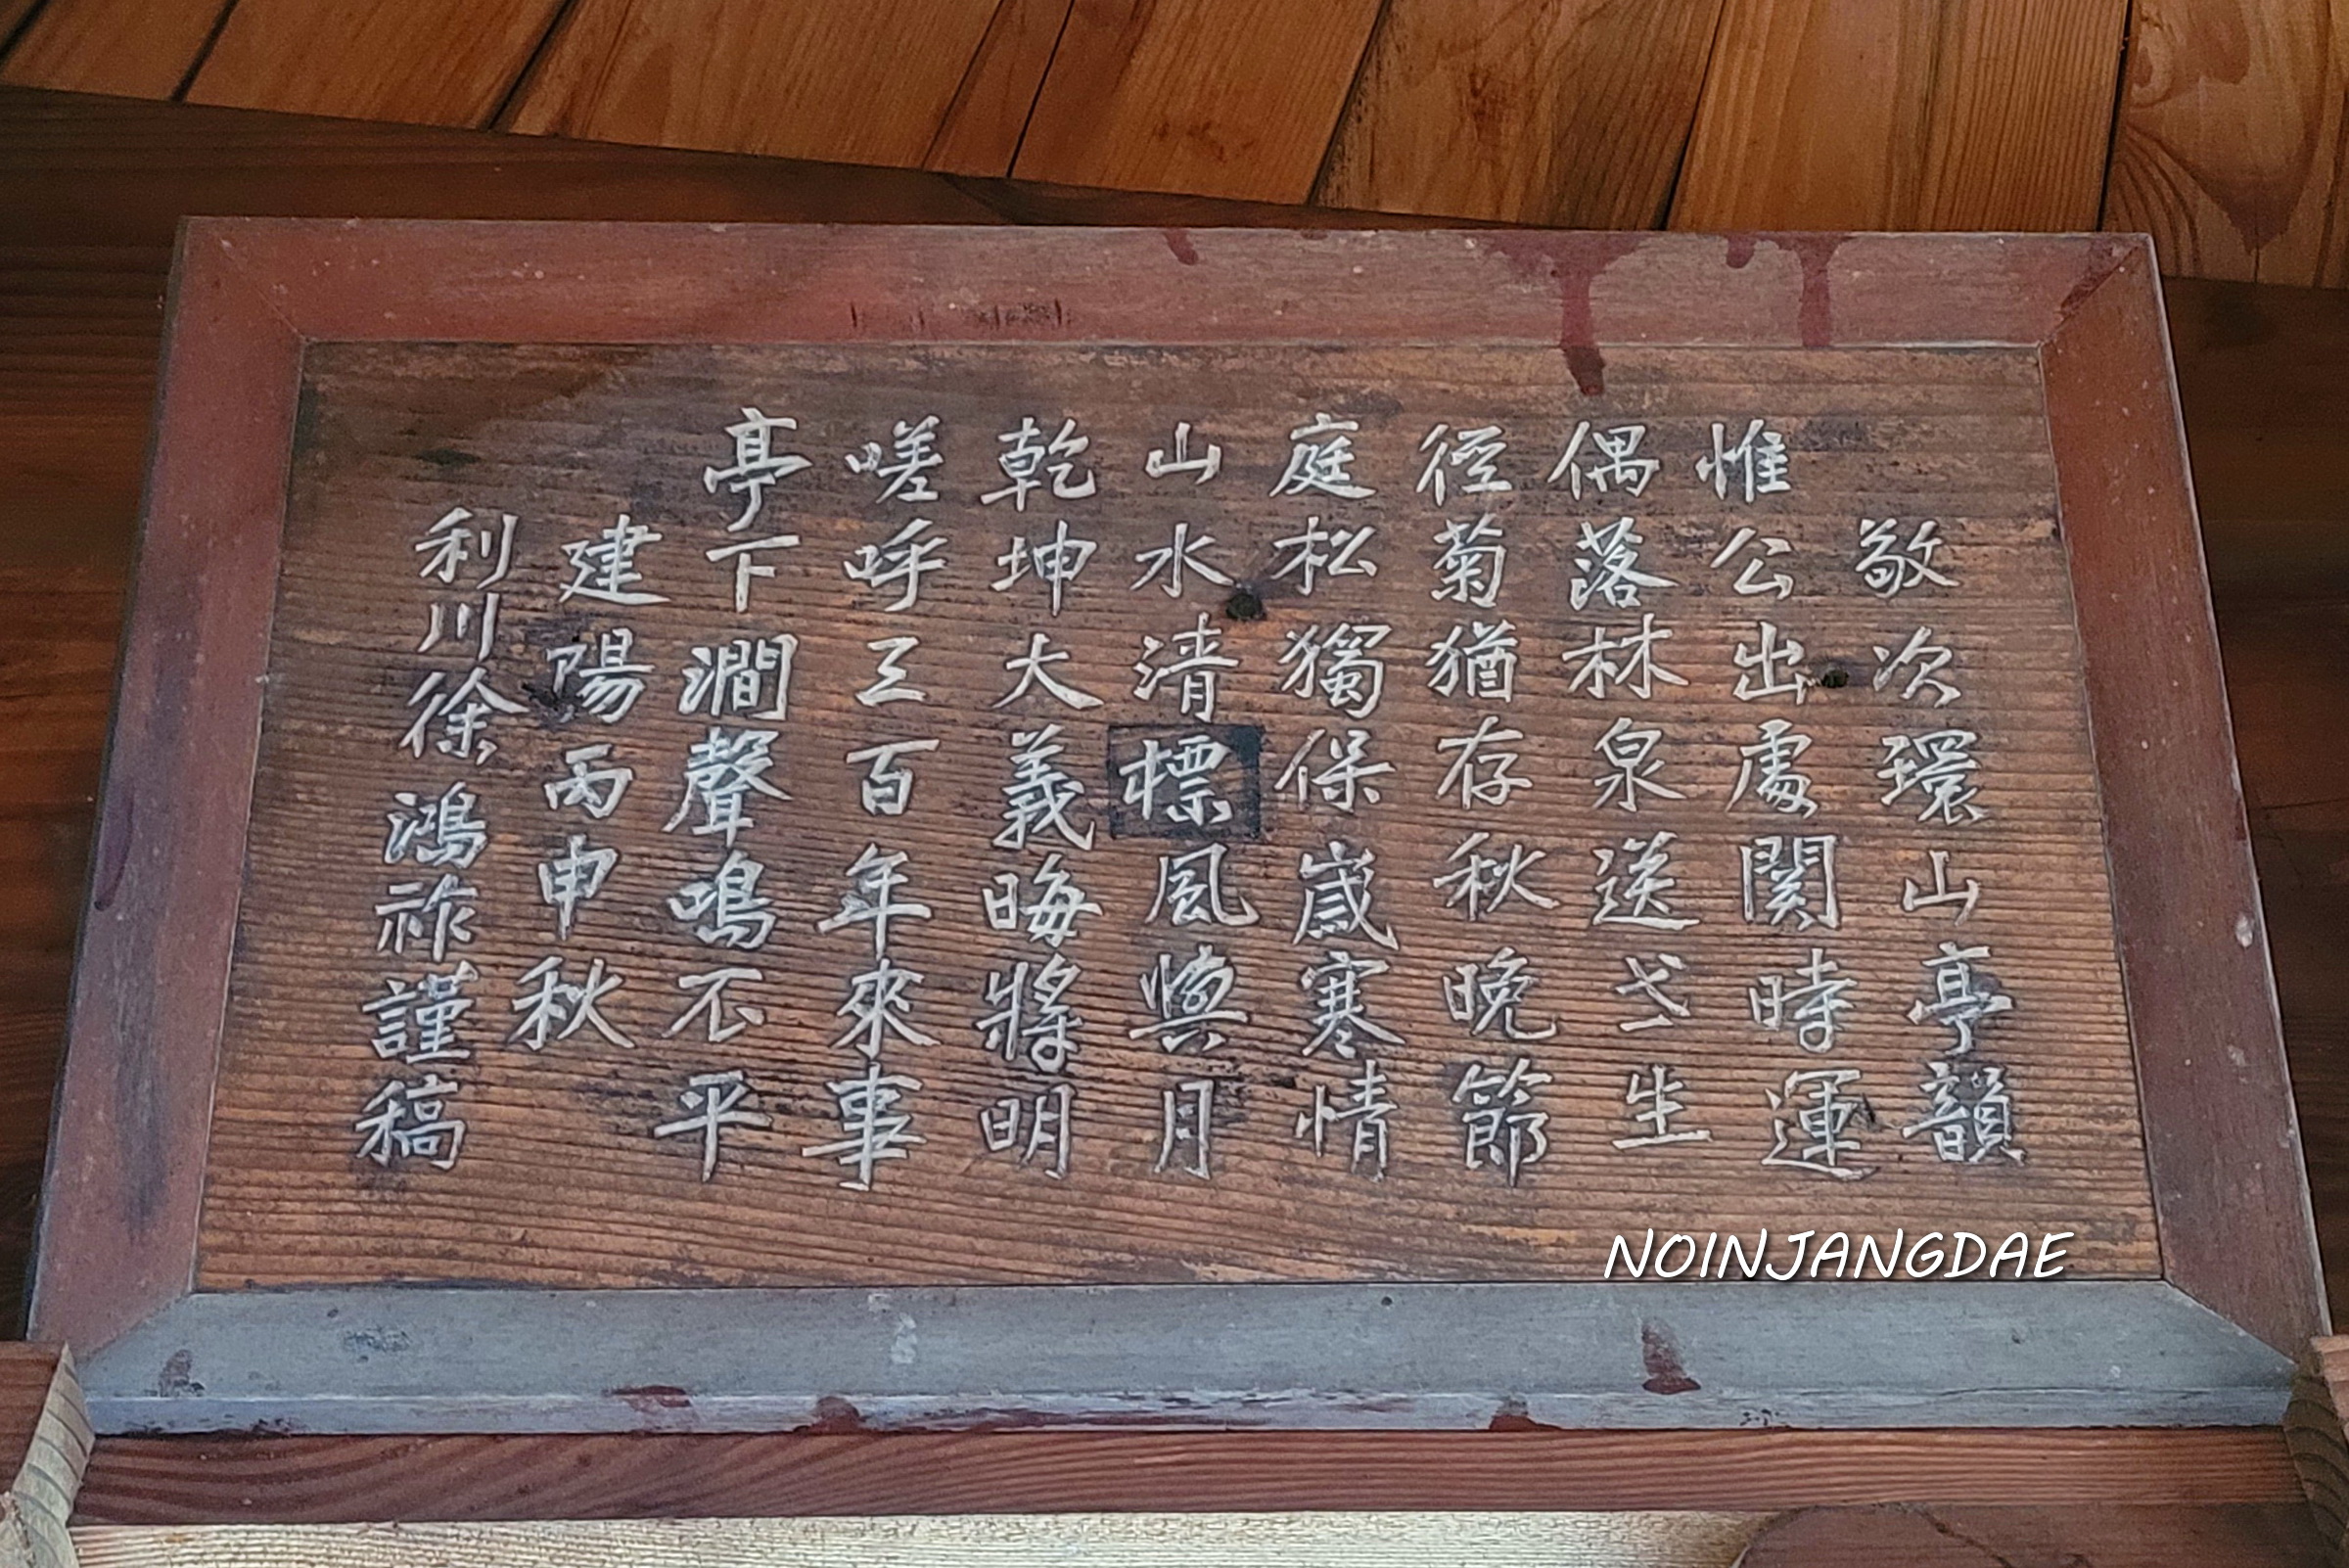 敬次環山亭韻
惟公出處関時運
偶落林泉送此生
徑菊猶存秋晚節
庭松獨保歲寒情
山水清標風與月
乾坤大義晦將明
嗟呼三百年來事
亭下澗聲鳴不平
建陽丙申秋
利川徐鴻祚謹稿
NOINJANGDAE